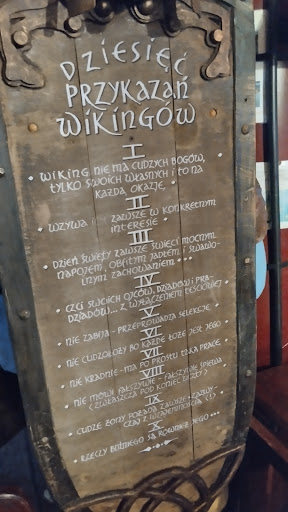 Dziesięć
Przykazań
Wikingów
I
• Wiking nie ma cudzych bogów,
tylko swoich własnych i to na
każdą okazję •
II
• Wzywa ich zawsze w konkretnym
interesie •
III
• Dzień święty zawsze święci mocnym
napojem, obfitym jadłem i swawo-
lnym zachowaniem •••
IV
• Czci swoich ojców, dziadów i pra-
dziadów... z wyłączeniem teściowej •
V
• Nie zabija - przeprowadza selekcję •
VI
• Nie cudzołoży bo każde łoże jest jego •
VII
• Nie kradnie - ma po prostu taką pracę •
VIII
• Nie mówi fałszywie - fałszywie śpiewa
(zwłaszcza pod koniec uczty) •
IX
• Cudze żony pożąda zawsze - zazwy-
czaj z wzajemnością (!) •
X
• Rzeczy bliźniego są również jego •••